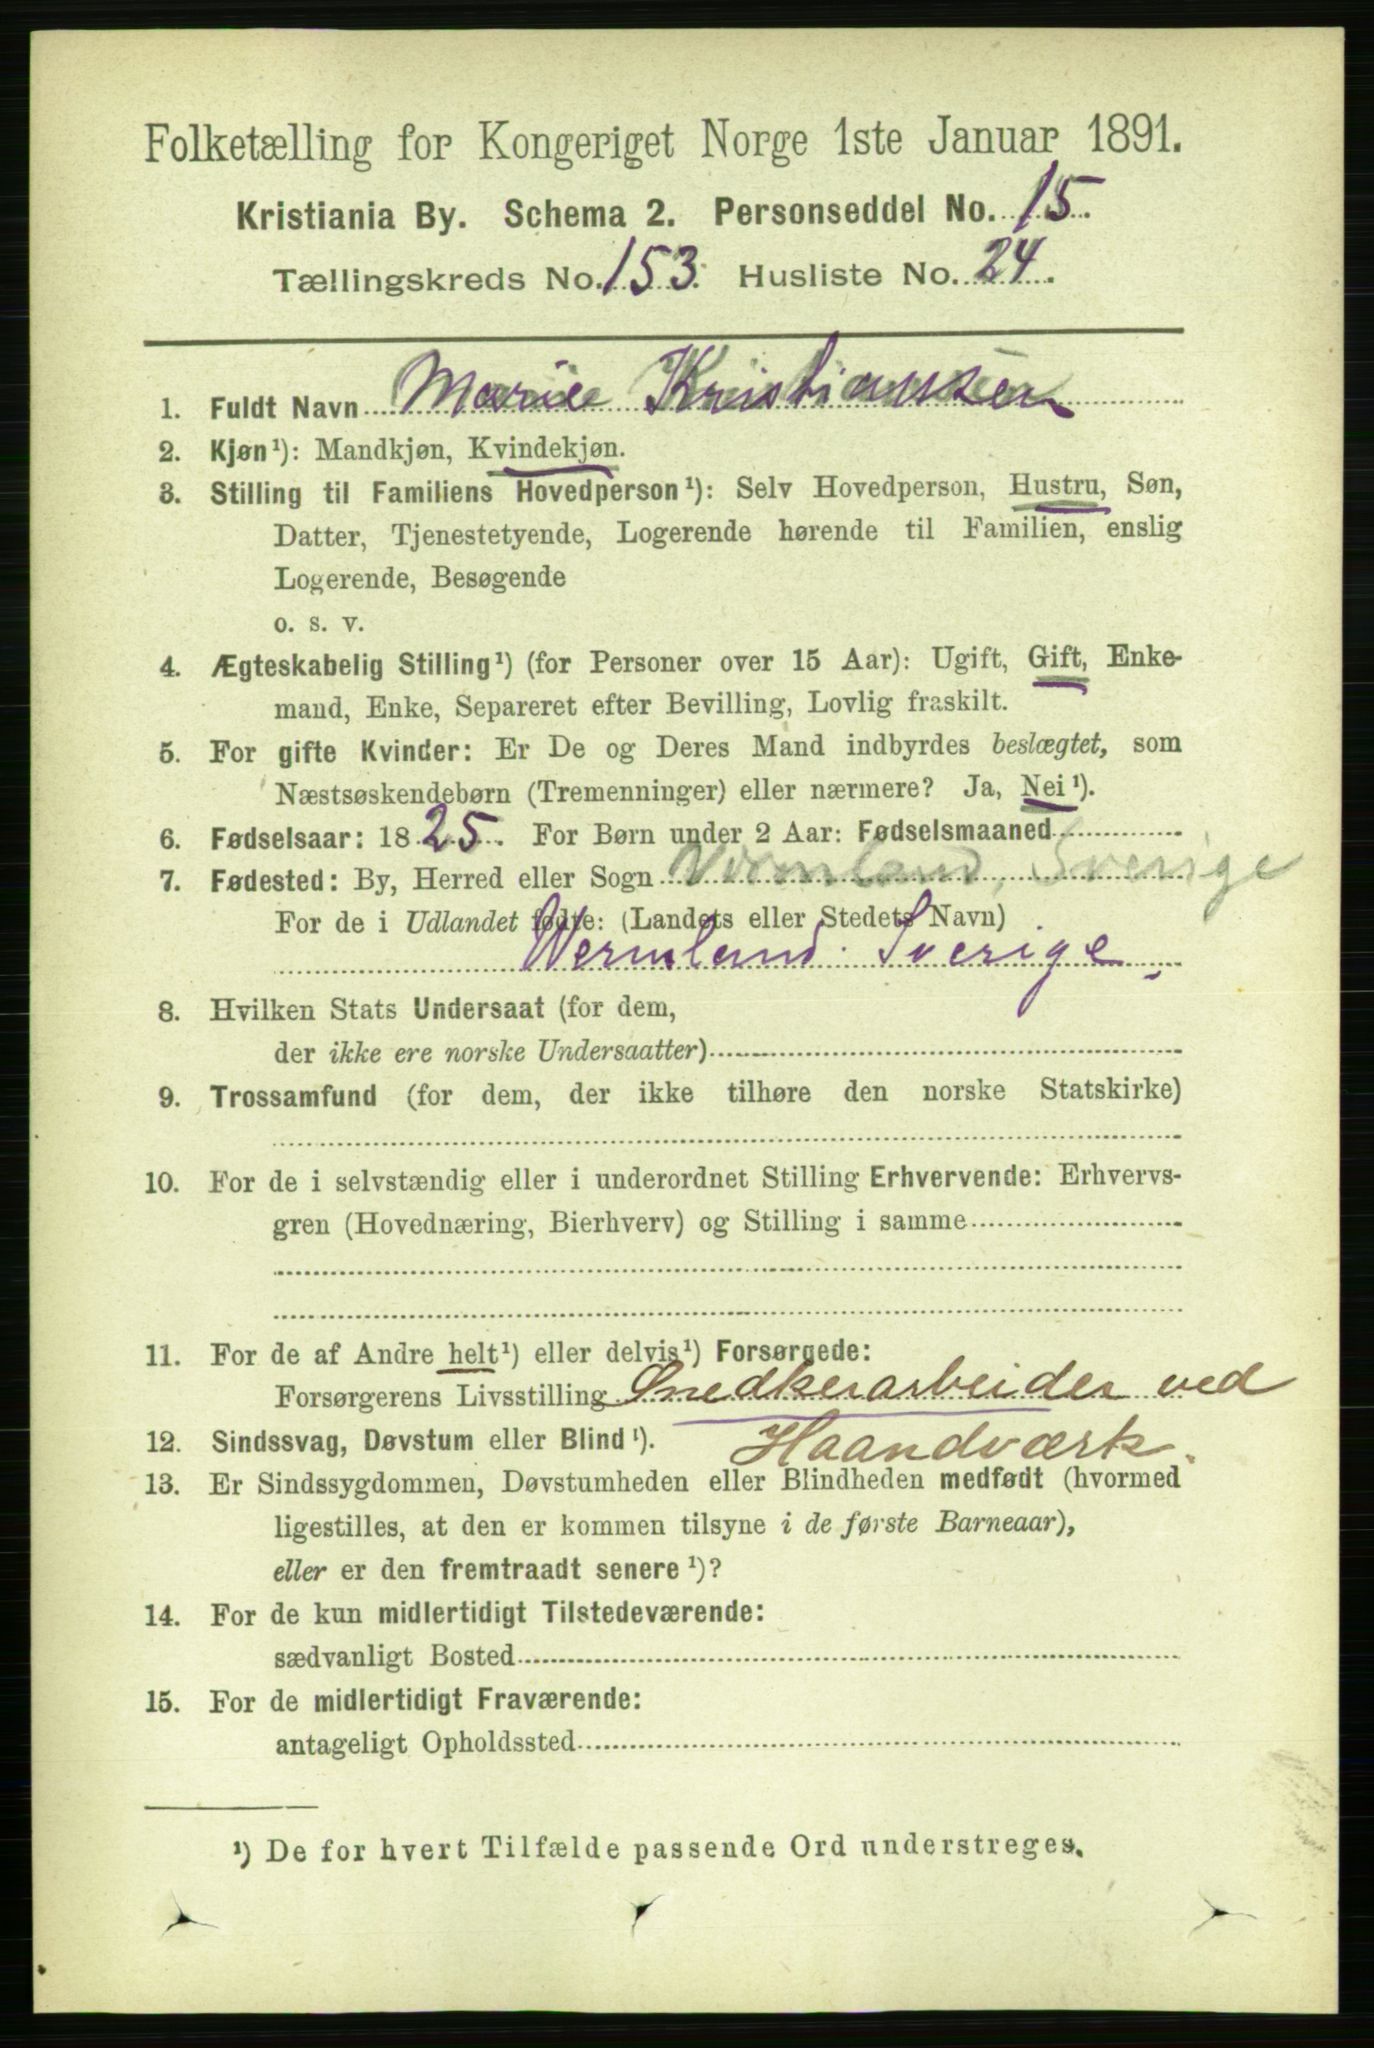 Folketælling for Kongeriget Norge 1ste Januar 1891.
Kristiania By. Schema 2. Personseddel No. 15.
Tællingskreds No. 153. Husliste No. 24.
1. Fuldt Navn Marie Kristiansen
2. Kjøn¹): Mandkjøn, Kvindekjøn.
3. Stilling til Familiens Hovedperson¹): Selv Hovedperson, Hustru, Søn,
Datter, Tjenestetyende, Logerende hørende til Familien, enslig
Logerende, Besøgende
o. s. v.
4. Ægteskabelig Stilling¹) (for Personer over 15 Aar): Ugift, Gift, Enke-
mand, Enke, Separeret efter Bevilling, Lovlig fraskilt.
5. For gifte Kvinder: Er De og Deres Mand indbyrdes beslægtet, som
Næstsøskendebørn (Tremenninger) eller nærmere? Ja, Nei¹).
6. Fødselsaar: 1825. For Børn under 2 Aar: Fødselsmaaned
7. Fødested: By, Herred eller Sogn Vermland, Sverige
For de i Udlandet fødte: (Landets eller Stedets Navn)
Wermland. Sverige.
8. Hvilken Stats Undersaat (for dem,
der ikke ere norske Undersaatter)
9. Trossamfund (for dem, der ikke tilhøre den norske Statskirke)
10. For de i selvstændig eller i underordnet Stilling Erhvervende: Erhvervs-
gren (Hovednæring, Bierhverv) og Stilling i samme
11. For de af Andre helt¹) eller delvis¹) Forsørgede:
Forsørgerens Livsstilling Snedkerarbeider ved
Haandværk.
12. Sindssvag, Døvstum eller Blind¹).
13. Er Sindssygdommen, Døvstumheden eller Blindheden medfødt (hvormed
ligestilles, at den er kommen tilsyne i de første Barneaar),
eller er den fremtraadt senere¹)?
14. For de kun midlertidigt Tilstedeværende:
sædvanligt Bosted
15. For de midlertidigt Fraværende:
antageligt Opholdssted
¹) De for hvert Tilfælde passende Ord understreges.